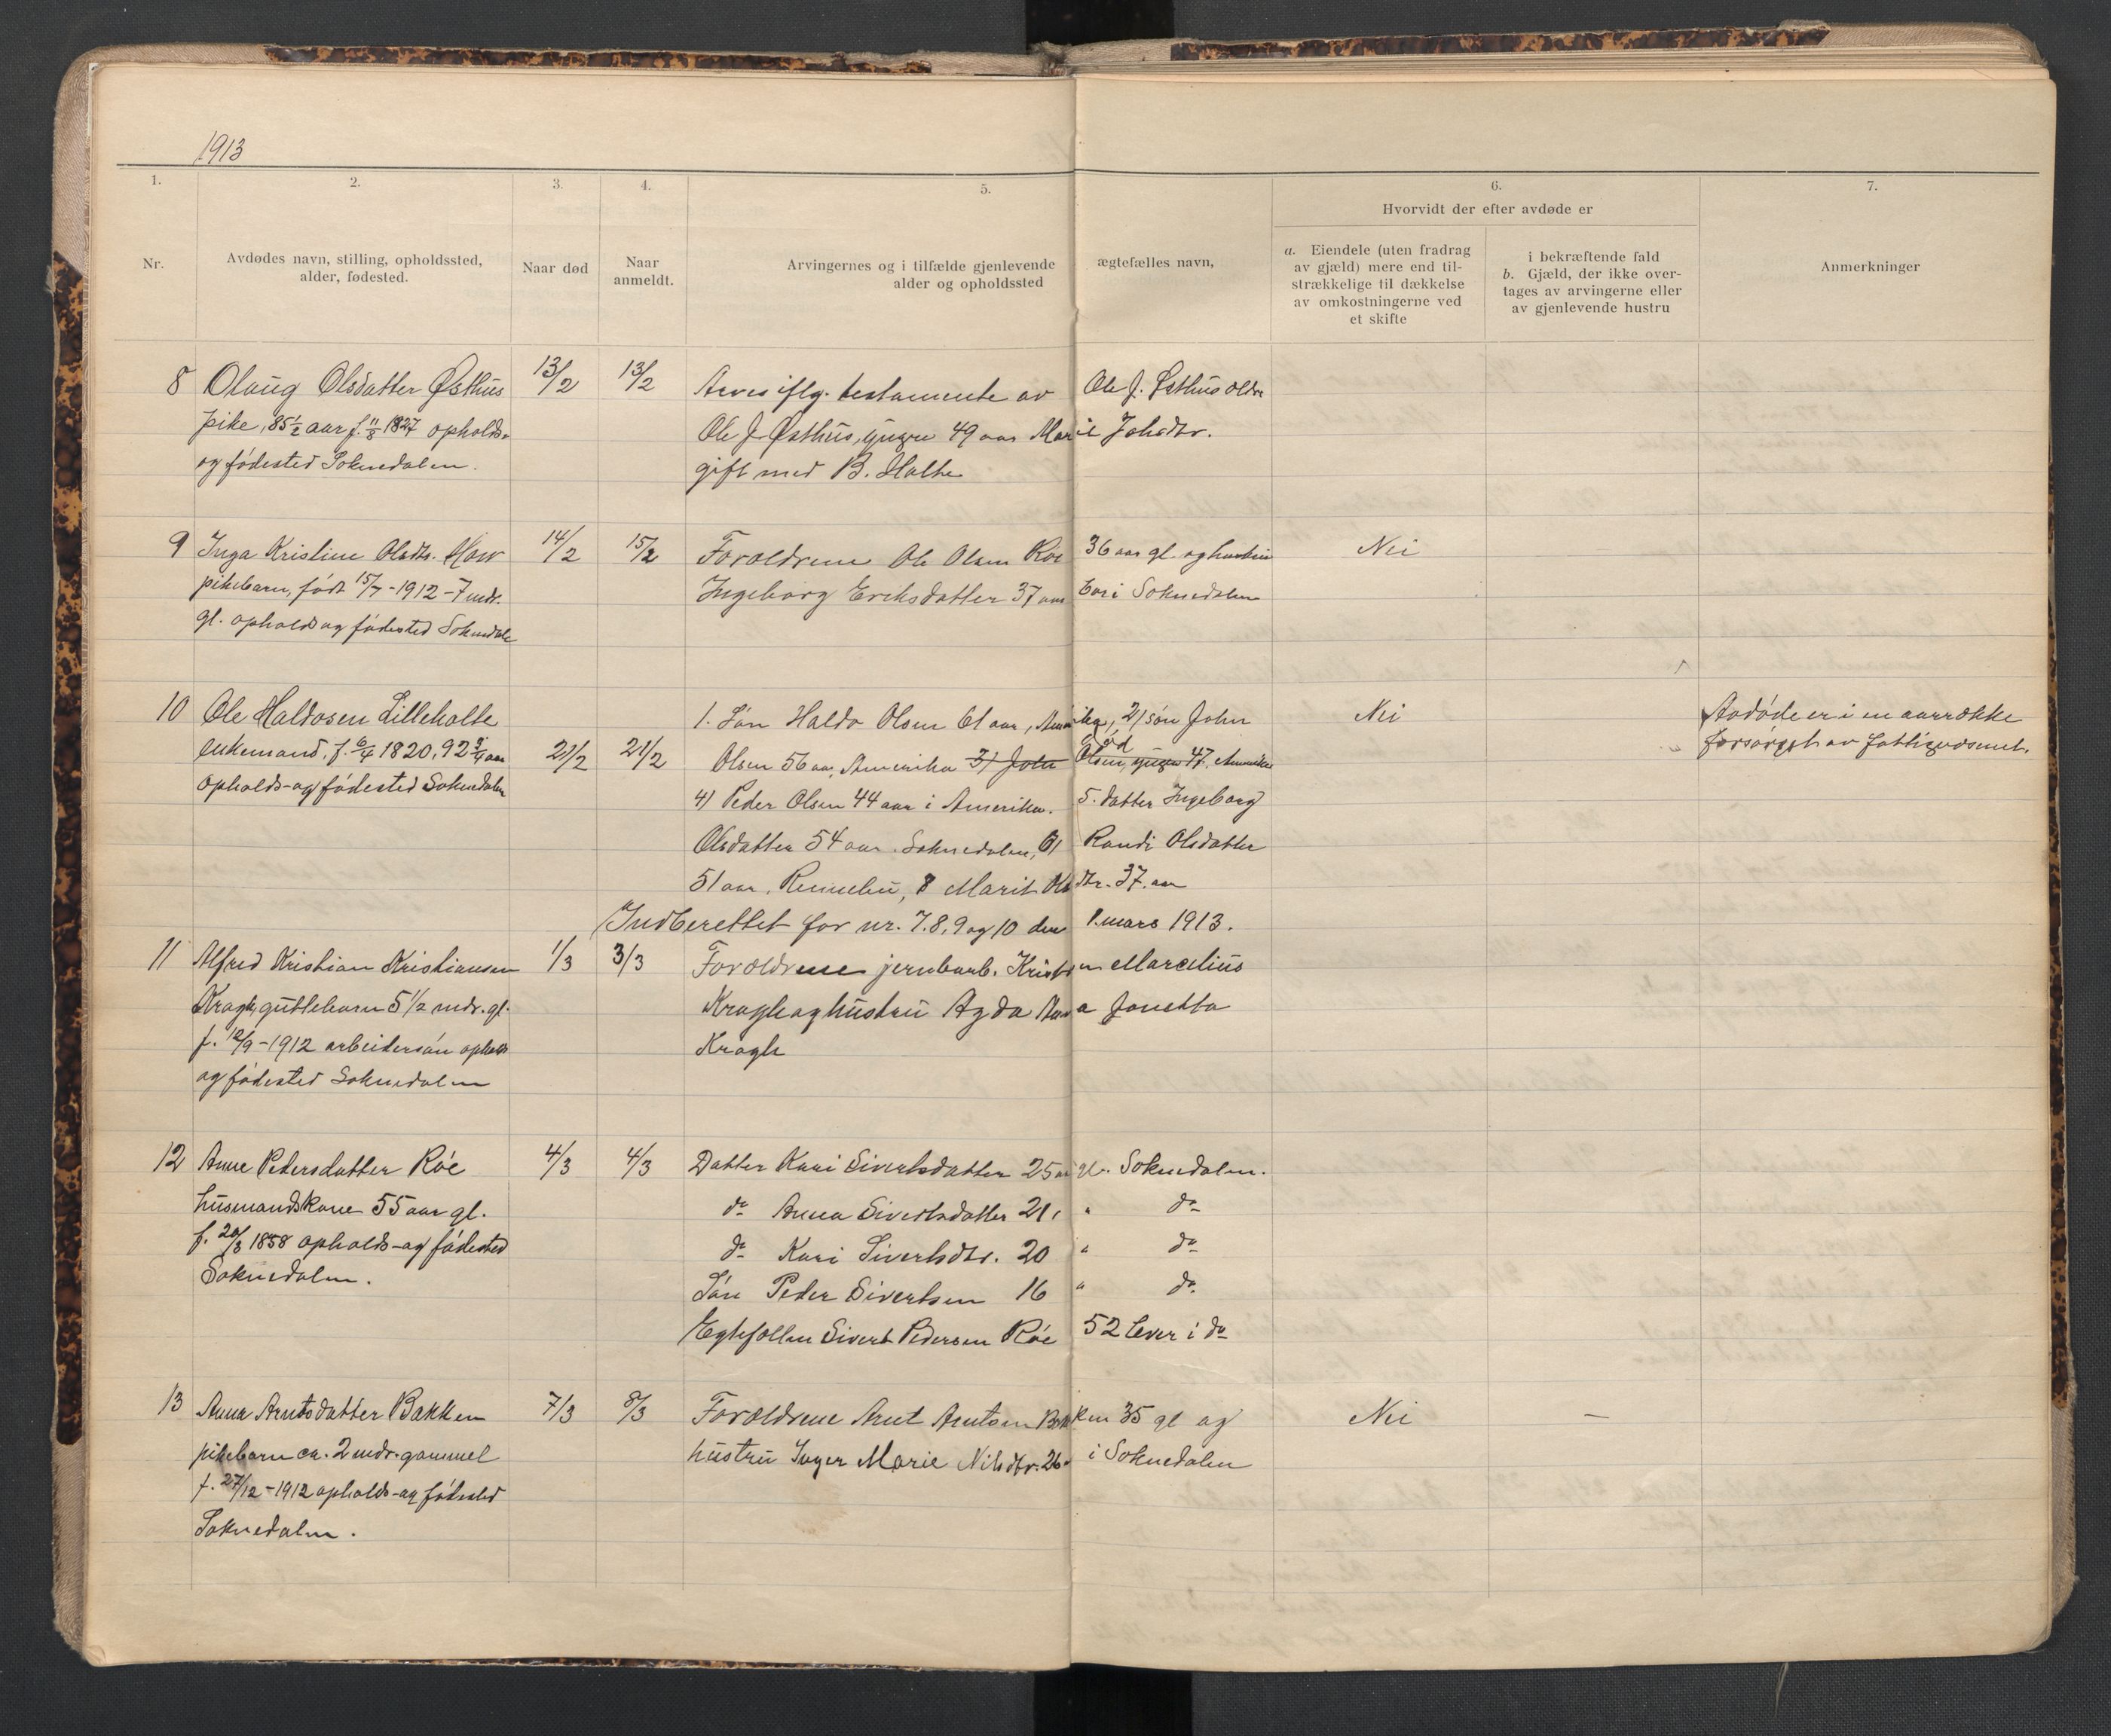 1913
1. 2. 3. 4. 5. 6. 7.
Nr.
Avdødes navn, stilling, opholdssted,
alder, fødested.
Naar død
Naar
anmeldt.
Arvingernes og i tilfælde gjenlevende ægtefælles navn,
alder og opholdssted
Hvorvidt der efter avdøde er
a. Eiendele (uten fradrag
av gjæld) mere end til-
strækkelige til dækkelse
av omkostningerne ved
et skifte
i bekræftende fald
b. Gjæld, der ikke over-
tages av arvingerne eller
av gjenlevende hustru
Anmerkninger
8 Olaug Olsdatter Østhus 13/2 13/2 Arves iflg. testamente av Ole J. Østhus oldre
pike, 85½ aar f. 11/8 1827 opholds-
og fødested Soknedalen.
Ole J. Østhus, yngre 49 aar Marie Johsdtr.
gift med B. Halhe
9 Inga Kristine Olsdtr. 14/2 15/2 Forældrene Ole Olsen Röe 36 aar gl. og hustru Nei
pikebarn, født 15/7-1912 - 7 mdr.
gl. ophold og fødested Soknedalen
Ingeborg Eriksdatter 37 aar bor i Soknedalen
10 Ole Haldosen Lillehalte
enkemand, f. 6/4 1820, 92 aar
opholds- og fødested Soknedalen
21/2 21/2
1. Sön Haldo Olsen 61 aar, Amerika, 2) sön John Nei
Olsen 56 aar, Amerika 3) John Olsen, yngre 47, Amerika
død
4) Peder Olsen 44 aar i Amerika. 5. datter Ingeborg
Olsdatter 54 aar. Soknedalen, 6) Randi Olsdatter
51 aar. Rennebu, 8 Marit Olsdtr. 37. aar
Avdøde er i en aarrække
forsørget av fattigvæsenet.
Indberettet for nr. 7. 8, 9 og 10 den 1. mars 1913.
11 Alfred Kristian Kristiansen 1/3 3/3 Forældrene jernbarb. Kristian Marcelius
Kragh, guttebarn 5½ mdr. gl.
f. /9-1912 arbeidersön opholds
og fødested Soknedalen
Kragh og hustru Agda Anna Jonetta
Kragh
12 Anne Pedersdatter Röe 4/3 4/3 Datter Kari Sivertsdatter 25 aar gl. Soknedalen.
husmandskone 55 aar gl.
f. 20/3 1858 opholds- og fødested
Soknedalen.
do Anna Sivertsdatter 21 " do
do Kari Sivertsdtr. 20 " do
Sön Peder Sivertsen 16 " do
Egtefellen Sivert Pedersen Röe 52 lever i do
13 Anna Arntsdatter Bakken 7/3 8/3 Forældrene Arnt Arntsen Bakken 35 gl og Nei —
pikebarn ca. 2 mdr. gammel
f. 27/12-1912 opholds- og fødested
Soknedalen.
hustru Inger Marie Nilsdtr. 26 i Soknedalen